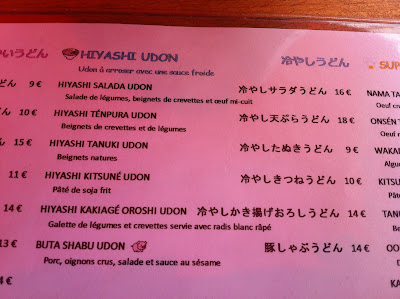 いうどん
HIYASHI UDON
冷やしうどん
SUP
Udon à arroser avec une sauce froide
9 €
HIYASHI SALADA UDON
冷やしサラダうどん
16 €
NAMA TA
Salade de légumes, beignets de crevettes et œuf mi-cuit
Oeuf cr
10 €
HIYASHI TÉNPURA UDON
冷やし天ぷらうどん
18 €
ONSÉN T
Beignets de crevettes et de légumes
Oeuf m
15 €
HIYASHI TANUKI UDON
冷やしたぬきうどん
9 €
WAKA
Beignets natures
Algue
11 €
HIYASHI KITSUNÉ UDON
冷やしきつねうどん
10 €
KITS
Pâté de soja frit
14 €
HIYASHI KAKIAGÉ OROSHI UDON
冷やしかき揚げおろしうどん
14 €
TAN
Galette de légumes et crevettes servie avec radis blanc râpé
13 €
BUTA SHABU UDON
豚しゃぶうどん
14 €
OO
Porc, oignons crus, salade et sauce au sésame
14 €
KA